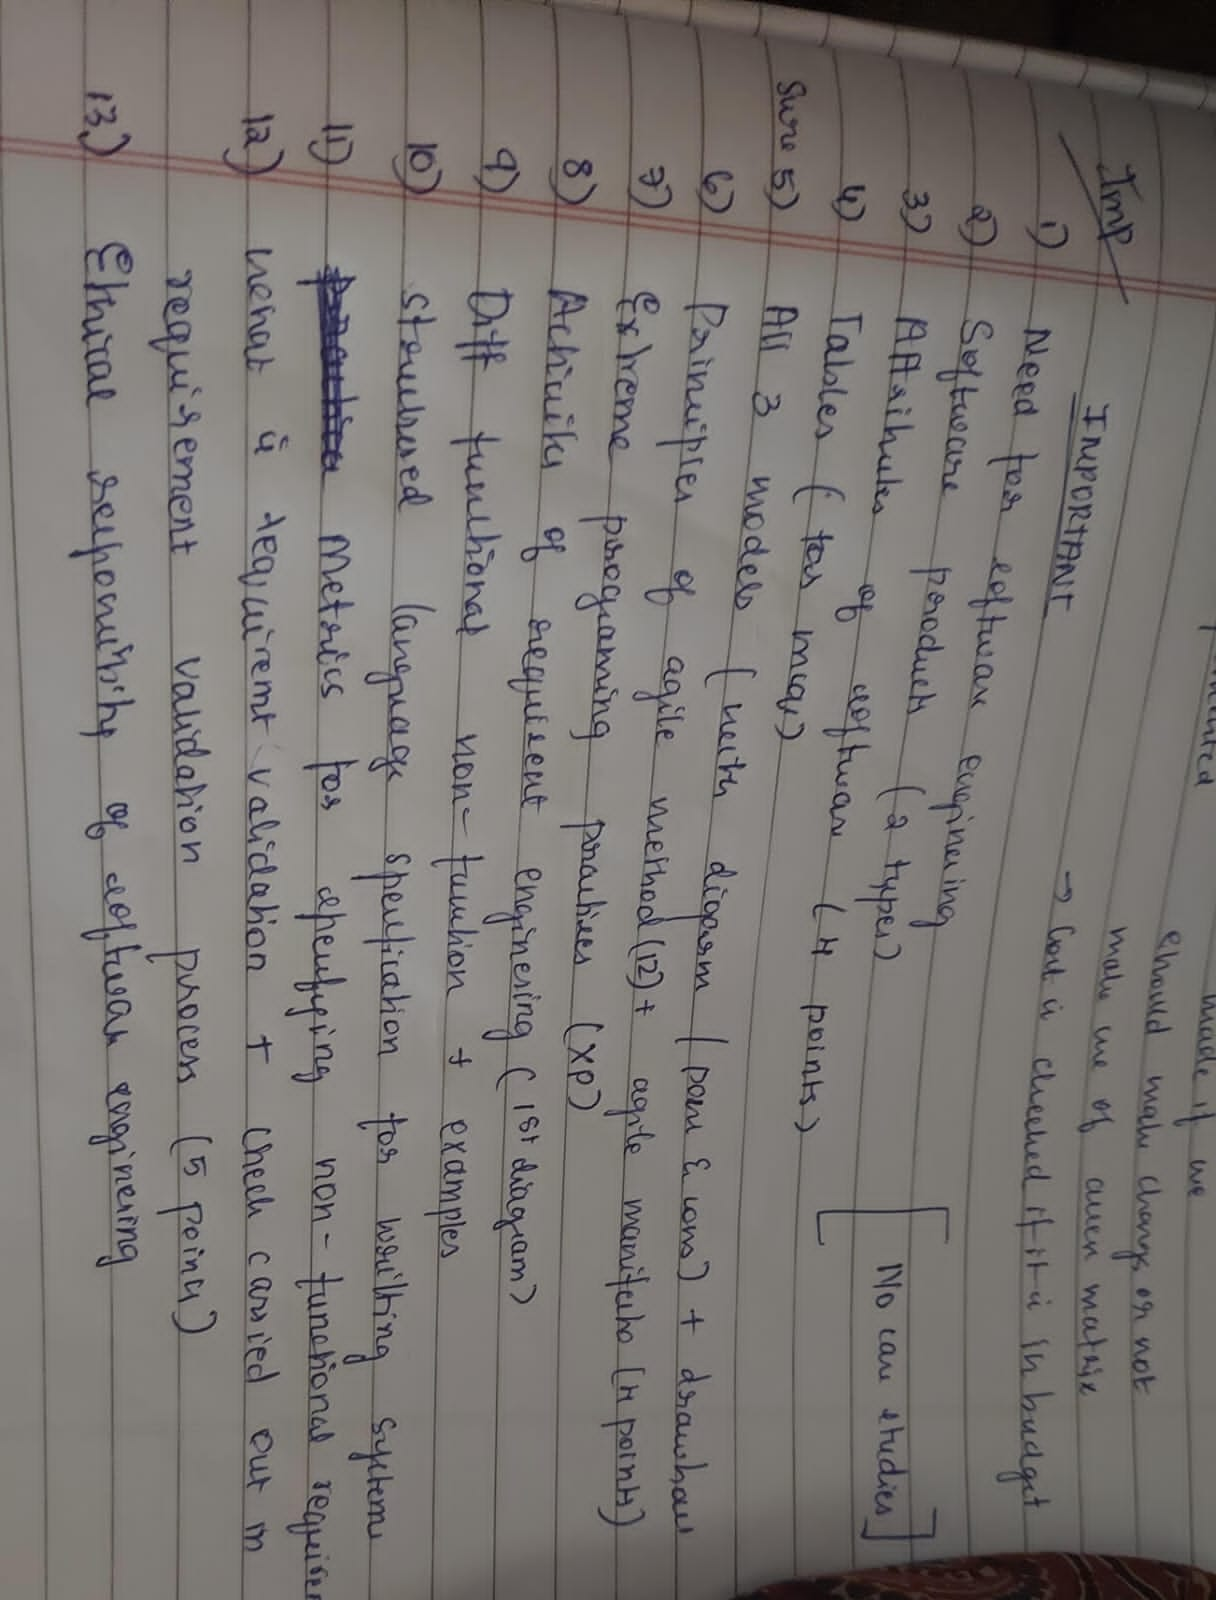 made if we
should make change or not
make use of
matrix
→ Cost is checked if it is in budget
Imp
IMPORTANT
1) Need for software engineering
2) Software products (2 types)
3) Attributes of software (4 points)
4) Tables (for mcqs)
[No case studies]
Sure 5) All 3 models (with digarm / pors & cons) + drawbaw
6) Prinuples of agile method (12) + agile manifesto (4 points)
7) Extreme programing practices (XP)
8) Activity of requirent enginering (1st diagram)
9) Diff functional non-function + examples
10) structured language specification for writting systems
11) Metrics for specifying non-functional require
12) what is requiremt validation + check carried out in
requirement validation process (5 points)
13) Ethical responsibility of software enginering